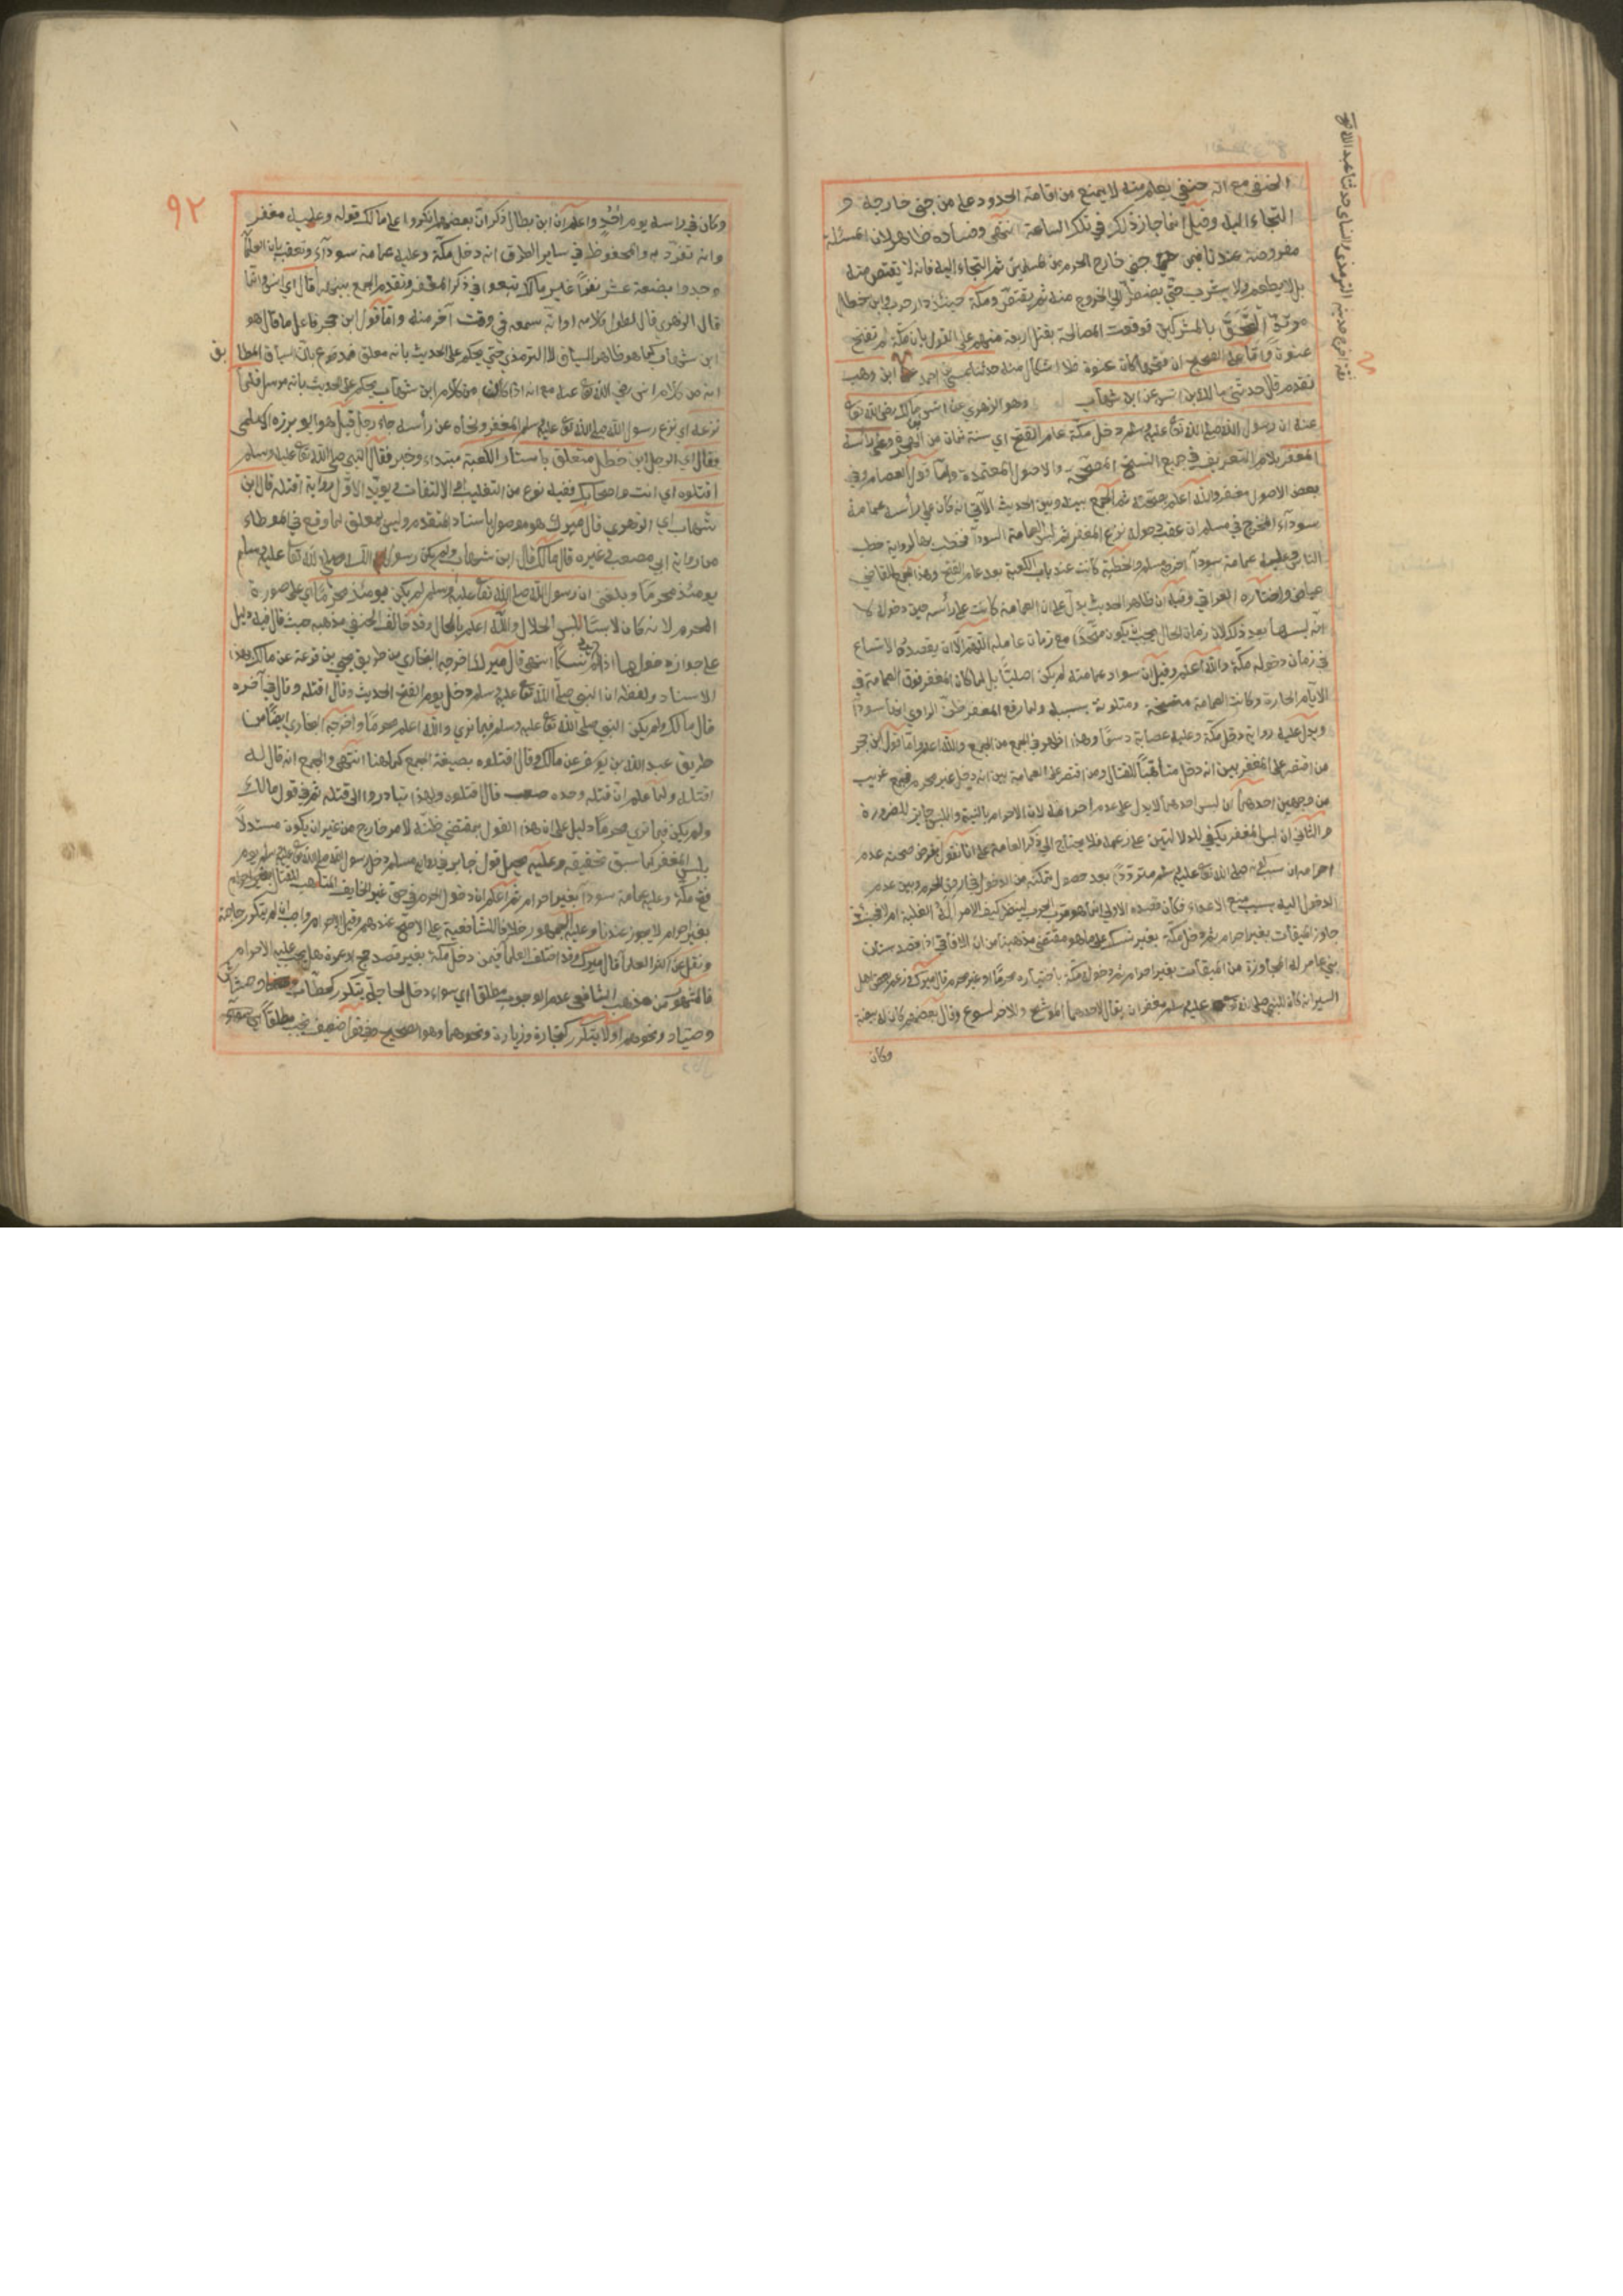 الحنفي مع انه حنفي يعلم منه لا يمنع من اقامة الحدود على من جنى خارجه و
التجاء اليه وقيل انما جاز ذلك في تلك الساعة انتهى وفساده ظاهر لان المسئلة
مفروضة عندنا فيمن جنى خارج الحرم من المسلمين ثم التجاء اليه فانه لا يقتص منه
بل لا يطعم ولا يشرب حتى يضطر الى الخروج منه ثم يقتص ومكة حينئذ دار حرب وابن خطل
مرتد التحق بالمشركين فوقعت المصالحة بقتل اربعة منهم على القول بان مكة لم تفتح
عنوة واما على الصحيح ان فتحها كان عنوة فلا اشكال فيه حدثنا عيسى بن احمد ابن وهب
تقدم قال حدثني مالك بن انس عن ابن شهاب وهو الزهري عن انس بن مالك رضي الله تعا
عنه ان رسول الله صلى الله تعا عليه وسلم دخل مكة عام الفتح اي سنة ثمان من الهجرة وعلى رأسه
المغفر بلام التعريف في جميع النسخ المصححة والاصول المعتمدة واما قول العصام وفي
بعض الاصول مغفر والله اعلم بصحته ثم الجمع بينه وبين الحديث الآتي انه كان على رأسه عمامة
سوداء المخرج في مسلم ان عقب دخوله نزع المغفر ثم لبس العمامة السوداء فخطب بها لرواية خطب
الناس وعليه عمامة سوداء اخرجه مسلم والخطبة كانت عند باب الكعبة بعد عام الفتح وهذا للقاضي
عياض واختاره العراقي وفيه ان ظاهر الحديث يدل على ان العمامة كانت على رأسه حين دخوله لا
انه لبسها بعد ذلك لان زمان الحال يجب ان يكون متحدا مع زمان عامله اللهم الا ان يقصد به الاتساع
في زمان دخوله مكة والله اعلم وقيل ان سواد عمامته لم يكن اصليا بل لما كان المغفر فوق العمامة في
الايام الحارة وكانت العمامة متسخة ومتلونة بسببه ولما رفع المغفر ظن الراوي انها سوداء
ويدل عليه رواية دخل مكة وعليه عصابة دسما وهذا اظهر في الجمع من الجمع والله اعلم واما قول ابن حجر
من اقتصر على المغفر بين انه دخل متأهبا للقتال ومن اقتصر على العمامة بين انه دخل غير محرم فجمع غريب
من وجهين احدهما ان لبس احدهما لا يدل على عدم احرامه لان الاحرام بالنية واللبس جايز للضرورة
والثاني ان لبس المغفر يكفي للدلالتين على زعمه فلا يحتاج الى ذكر العمامة على انا نقول بفرض صحته عدم
احرامه ان سببه صلى الله تعا عليه وسلم مترددا بعد حصول تمكنه من الدخول في ارض الحرم وبين عدم
الدخول اليه بسبب منع الاعداء فكان قصده الاولي انما هو قرب الحرم لينظر كيف الامر الى الغلبة ام
جاوز الميقات بغير احرام ثم دخل مكة بغير نسك على ما هو مقتضى مذهبنا من ان الافاقي اذا قصد بستان
بني عامر له المجاوزة من الميقات بغير احرام ثم دخول مكة باختياره محرما او غير محرم قال ميرك وزعم بعض اهل
السير انه كان للنبي صلى الله تع عليه وسلم مغفران يقال لاحدهما الموشح والاخر لسبوع وقال بعضهم كان له بيضة
وكان
٩٢
وكان في رأسه يوم أحد واعلم ان ابن بطال ذكر ان بعضهم انكروا على مالك قوله وعليه مغفر
وانه تفرد به والمحفوظ في ساير الطرق انه دخل مكة وعليه عمامة سوداء وتعقب بان العلماء
وجدوا بضعة عشر نفرا غير مالك تبعوا في ذكر المغفر وتقدم الجمع بينهما قال اي انس وانما
قال الزهري قال لطول كلامه او انه سمعه في وقت آخر منه واما قول ابن حجر فاعل ما قال هو
ابن شهاب كما هو ظاهر السياق لا الترمذي حتى يحكم على الحديث بانه معلق فمدفوع بان السياق المطابق
انه من كلام انس رضي الله تعا عنه مع انه اذا كان من كلام ابن شهاب يحكم على الحديث بانه مرسل فلما
نزعه اي نزع رسول الله صلى الله تعا عليه وسلم المغفر ونحاه عن رأسه جاء رجل قيل هو ابو برزة الاسلمي
فقال اي الرجل ابن خطل متعلق باستار الكعبة مبتداء وخبر فقال النبي صلى الله تعا عليه وسلم
اقتلوه اي انت واصحابك ففيه نوع من التغليب او الالتفات ويؤيد الاول رواية اقتله قال ابن
شهاب اي الزهري قال ميرك هو موصول باسناد المتقدم وليس بمعلق لما وقع في الموطاء
من رواية ابي مصعب وغيره قال مالك قال ابن شهاب ولم يكن رسول الله صلى الله تعا عليه وسلم
يومئذ محرما وبلغني ان رسول الله صلى الله تعا عليه وسلم لم يكن يومئذ محرما اي على صورة
المحرم لانه كان لابسا للبس الحلال والله اعلم بالحال وقد خالف الحنفي مذهبه حيث قال فيه دليل
على جواز دخولها اذا لم يرد نسكا انتهى قال ميرك اخرجه البخاري من طريق يحيى بن قزعة عن مالك بهذا
الاسناد ولفظه ان النبي صلى الله تعا عليه وسلم دخل يوم الفتح الحديث وقال اقتله وقال في آخره
قال مالك ولم يكن النبي صلى الله تعا عليه وسلم فيما نرى والله اعلم محرما واخرجه البخاري ايضا من
طريق عبد الله بن يوسف عن مالك وقال اقتلوه بصيغة الجمع كما هنا انتهى والجمع انه قال له
اقتله ولما علم ان قتله وحده صعب قال اقتلوه ولهذا تبادروا الى قتله ثم في قول مالك
ولم يكن فيما نرى محرما دليل على ان هذا القول بمقتضى ظنه لامر خارج من غير ان يكون مستدلا
بلبس المغفر كما سبق تحقيقه وعليه يحمل قول جابر في رواية مسلم دخل رسول الله صلى الله تعا عليه وسلم يوم
فتح مكة وعليه عمامة سوداء بغير احرام ثم اعلم ان دخول الحرم في حق غير الخايف المتأهب للقتال بغير احرام
بغير احرام لا يجوز عندنا وعليه الجمهور خلافا للشافعية على الاصح عندهم وقيل الاحرام واجب ان لم يتكرر حاجة
ونقل عن اكثر العلماء قال ميرك وقد اختلف العلماء فيمن دخل مكة بغير قصد حج او عمرة هل يجب عليه الاحرام
فالمشهور من مذهب الشافعي عدم الوجوب مطلقا اي سواء دخل لحاجة يتكرر كحطاب وحشاش
وصياد ونحوهم او لا يتكرر كتجارة وزيارة ونحوهما وهو الصحيح وفي قول ضعيف يجب مطلقا